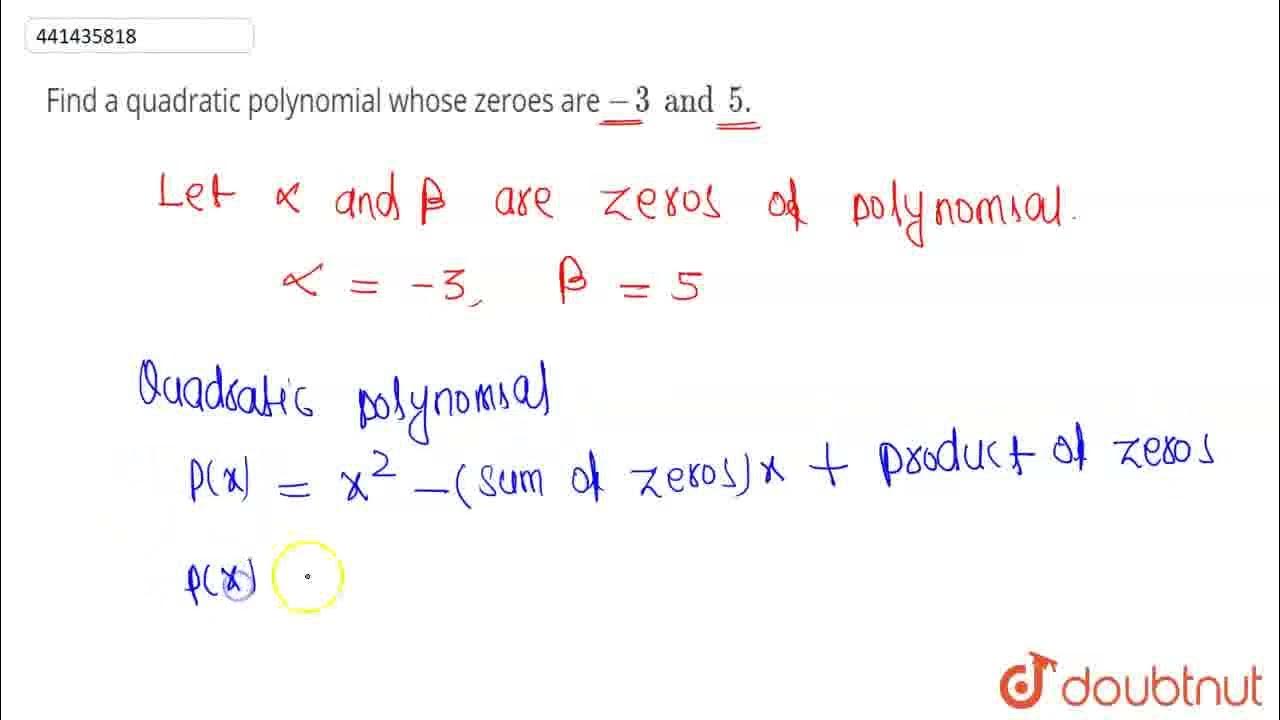 441435818
Find a quadratic polynomial whose zeroes are −3 and 5.
Let α and β are zeros of polynomial.
α = -3, β = 5
Quadratic polynomial
P(x) = x² - (sum of zeros)x + product of zeros
P(x)
doubtnut